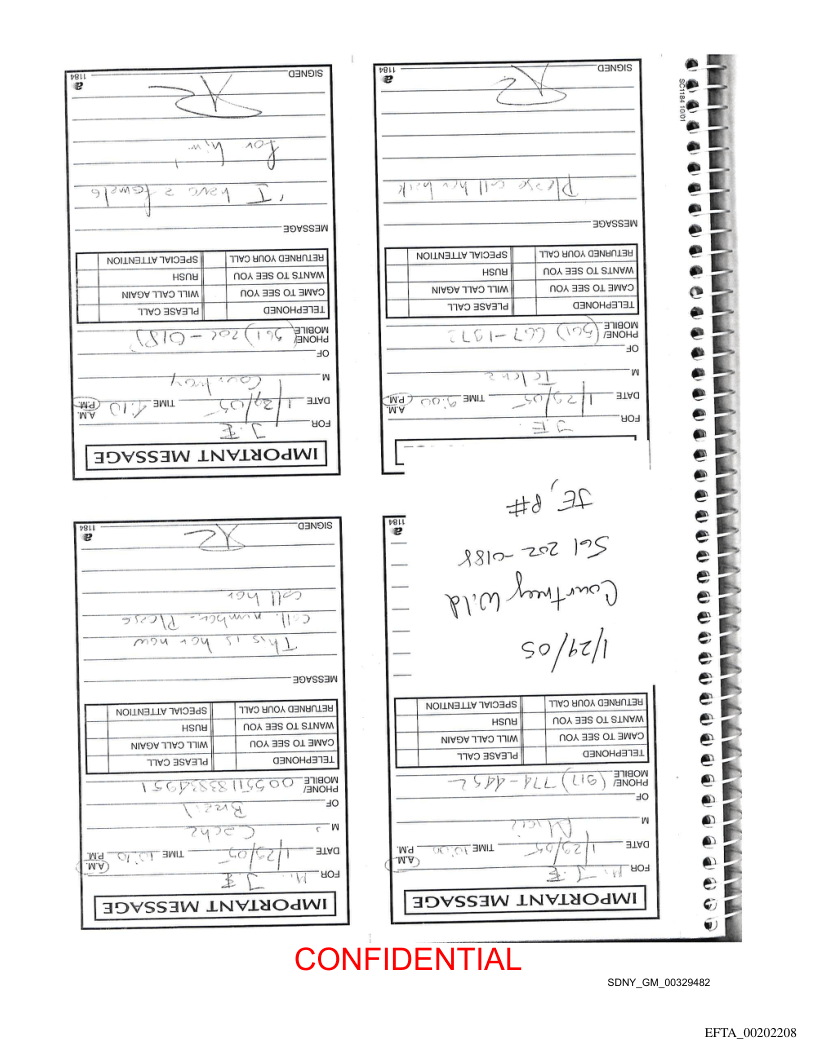 IMPORTANT MESSAGE
FOR J.E
DATE 1/29/05 TIME 1:10 A.M. P.M.
M Courtney
OF
PHONE/ MOBILE (561) 202-0188
TELEPHONED PLEASE CALL
CAME TO SEE YOU WILL CALL AGAIN
WANTS TO SEE YOU RUSH
RETURNED YOUR CALL SPECIAL ATTENTION
MESSAGE
"I have a female
for him"
SIGNED
a 1184
FOR J.E.
DATE 1/29/05 TIME 9:00 A.M. P.M.
M
OF
PHONE/ MOBILE (561)
TELEPHONED PLEASE CALL
CAME TO SEE YOU WILL CALL AGAIN
WANTS TO SEE YOU RUSH
RETURNED YOUR CALL SPECIAL ATTENTION
MESSAGE
Please call her back
SIGNED
a 1184
SC1184 10/01
IMPORTANT MESSAGE
FOR Mr. J E
DATE 1/29/05 TIME 10:10 A.M. P.M.
M
OF Brazil
PHONE/ MOBILE 00551183334951
TELEPHONED PLEASE CALL
CAME TO SEE YOU WILL CALL AGAIN
WANTS TO SEE YOU RUSH
RETURNED YOUR CALL SPECIAL ATTENTION
MESSAGE
This is her new
cell. number. Please
call her
SIGNED
a 1184
IMPORTANT MESSAGE
FOR Mr. J.E
DATE 1/29/05 TIME 10:30 A.M. P.M.
M
OF
PHONE/ MOBILE (917) 774-4452
TELEPHONED PLEASE CALL
CAME TO SEE YOU WILL CALL AGAIN
WANTS TO SEE YOU RUSH
RETURNED YOUR CALL SPECIAL ATTENTION
a 1184
1/29/05
Courtney Wild
561 202-0188
JE, P#
CONFIDENTIAL
SDNY_GM_00329482
EFTA_00202208